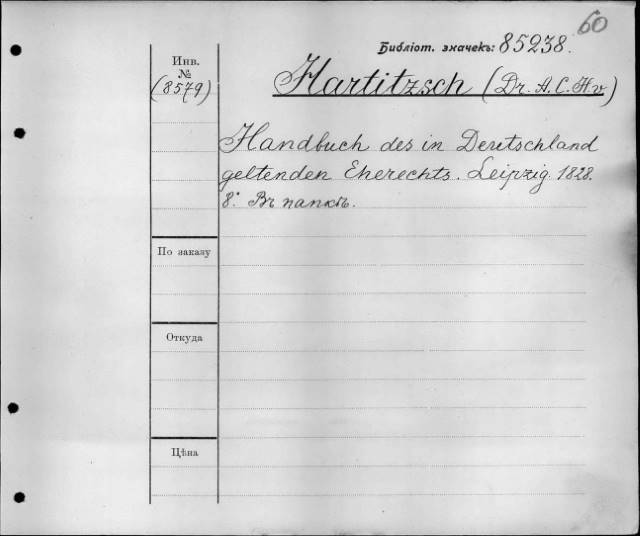 60
Библіот. значекъ: 85238.
Инв.
№
(8579)
Hartitzsch (Dr. A. C. H. v)
Handbuch des in Deutschland
geltenden Eherechts. Leipzig. 1828.
8° Въ папкѣ.
По заказу
Откуда
Цѣна